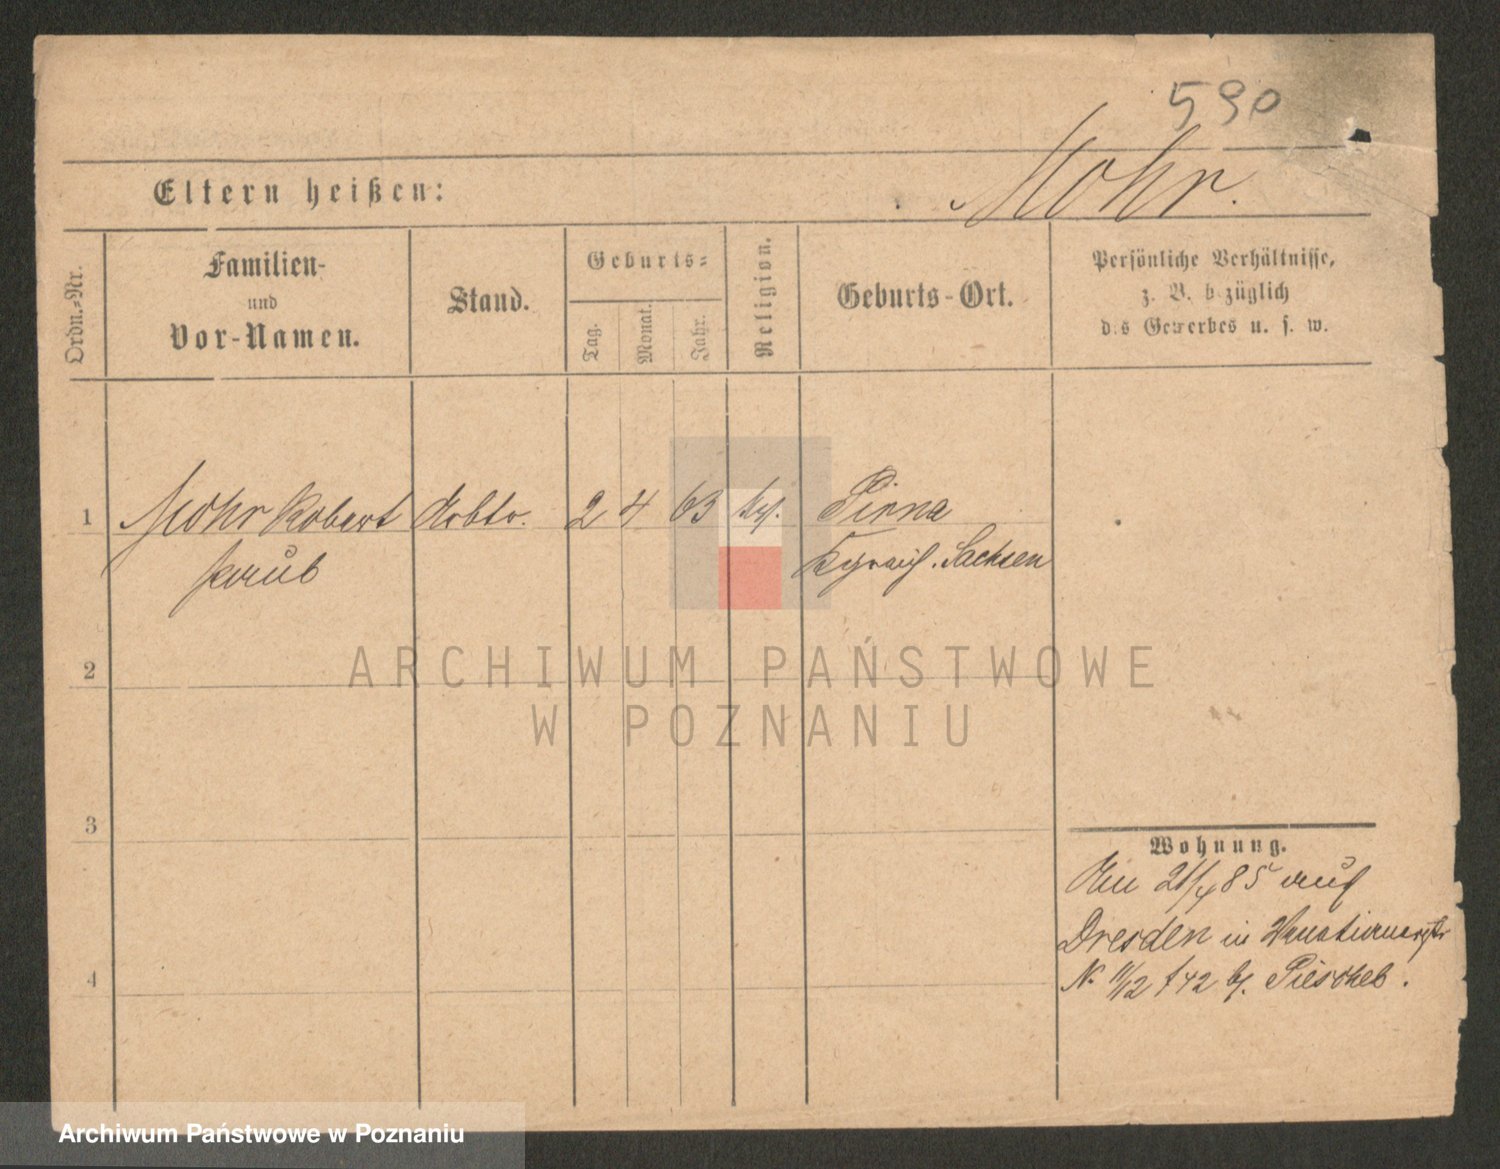 590
Mohr.
Eltern heißen:
Ordn.-Nr.
Familien-
und
Vor-Namen.
Stand.
Geburts-
Tag.
Monat.
Jahr.
Religion.
Geburts-Ort.
Persönliche Verhältnisse,
z. B. bezüglich
des Gewerbes u. s. w.
1 Mohr Robert Arbtr. 2 4 63 Pirna
Kgreich. Sachsen
2
3
4
Wohnung.
Am 21/4 85 auf
Dresden in
N. 11/12 t 42 Pieschen.
ARCHIWUM PAŃSTWOWE
W POZNANIU
Archiwum Państwowe w Poznaniu